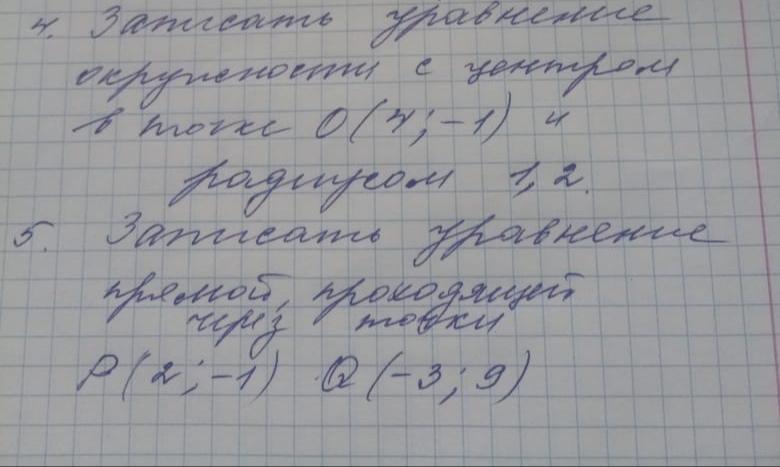 4. Записать уравнение
окружности с центром
в точке О(4;-1) и
радиусом 1,2.
5. Записать уравнение
прямой, проходящей
через точки
P(2;-1) Q(-3;9)